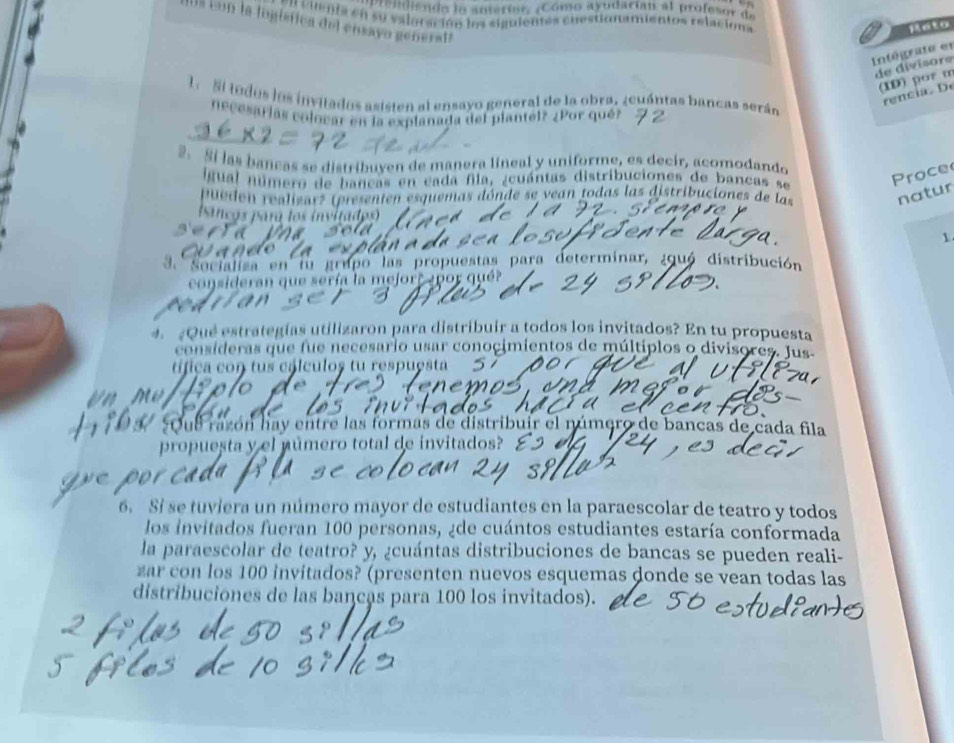 prendiendo lo anterior, ¿Cómo ayudarían al profesor de
en cuenta en su valoración los siguientes cuestionamientos relaciona
dos con la logística del ensayo general?
Reto
Intégrate e
de divisore
(ID) por m
rencia. De
1. Si todos los invitados asisten al ensayo general de la obra, ¿cuántas bancas serán
necesarias colocar en la explanada del plantel? ¿Por qué? 72
36 x 2 = 72
2. Si las bancas se distribuyen de manera lineal y uniforme, es decir, acomodando
igual número de bancas en cada fila, ¿cuántas distribuciones de bancas se
pueden realizar? (presenten esquemas dónde se vean todas las distribuciones de las
bancas para los invitados) línea de 1 a 72. siempre y
sería una sola
cuando la explanada sea lo suficiente larga.
Proce
natur
1
3. Socializa en tu grupo las propuestas para determinar, ¿qué distribución
consideran que sería la mejor? ¿por qué?
podrían ser 3 filas de 24 sillos.
4. ¿Qué estrategias utilizaron para distribuir a todos los invitados? En tu propuesta
consideras que fue necesario usar conocimientos de múltiplos o divisores. Jus-
tifica con tus cálculos tu respuesta si por que al utilizar
un multiplo de tres tenemos una mejor dis-
tribu ción de los invitados hacia el centro.
¿Qué razón hay entre las formas de distribuir el número de bancas de cada fila
propuesta y el número total de invitados? Es de 1/24, es decir
que por cada fila se colocan 24 sillas
6. Si se tuviera un número mayor de estudiantes en la paraescolar de teatro y todos
los invitados fueran 100 personas, ¿de cuántos estudiantes estaría conformada
la paraescolar de teatro? y, ¿cuántas distribuciones de bancas se pueden reali-
zar con los 100 invitados? (presenten nuevos esquemas donde se vean todas las
distribuciones de las bancas para 100 los invitados). de 50 estudiantes
2 filas de 50 sillas
5 filas de 10 sillas